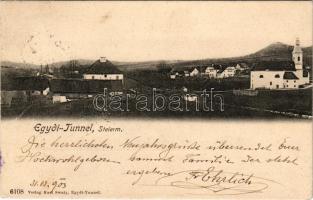 Egydi-Tunnel, Steierm.
Die herzlichsten Neujahrsgrüsse übersendet Euer
Hochwohlgeboren sammt Familie Ihr stets
ergebener
F. Ehrlich
31./12. 903
6108 Verlag Karl Swaty, Egydi-Tunnel.